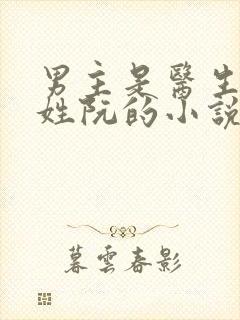 男主是醫生
姓阮的小說
暮雲春影